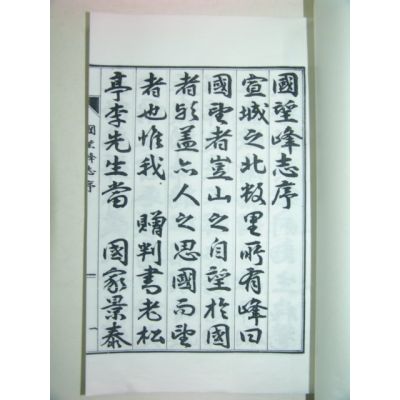 國望峰志序
宣城之北数里所有峰曰
國望者豈山之自望於國
者歟盖亦人之思國而望
者也惟我 贈判書老松
亭李先生當 國家景泰
國望峰志序 一